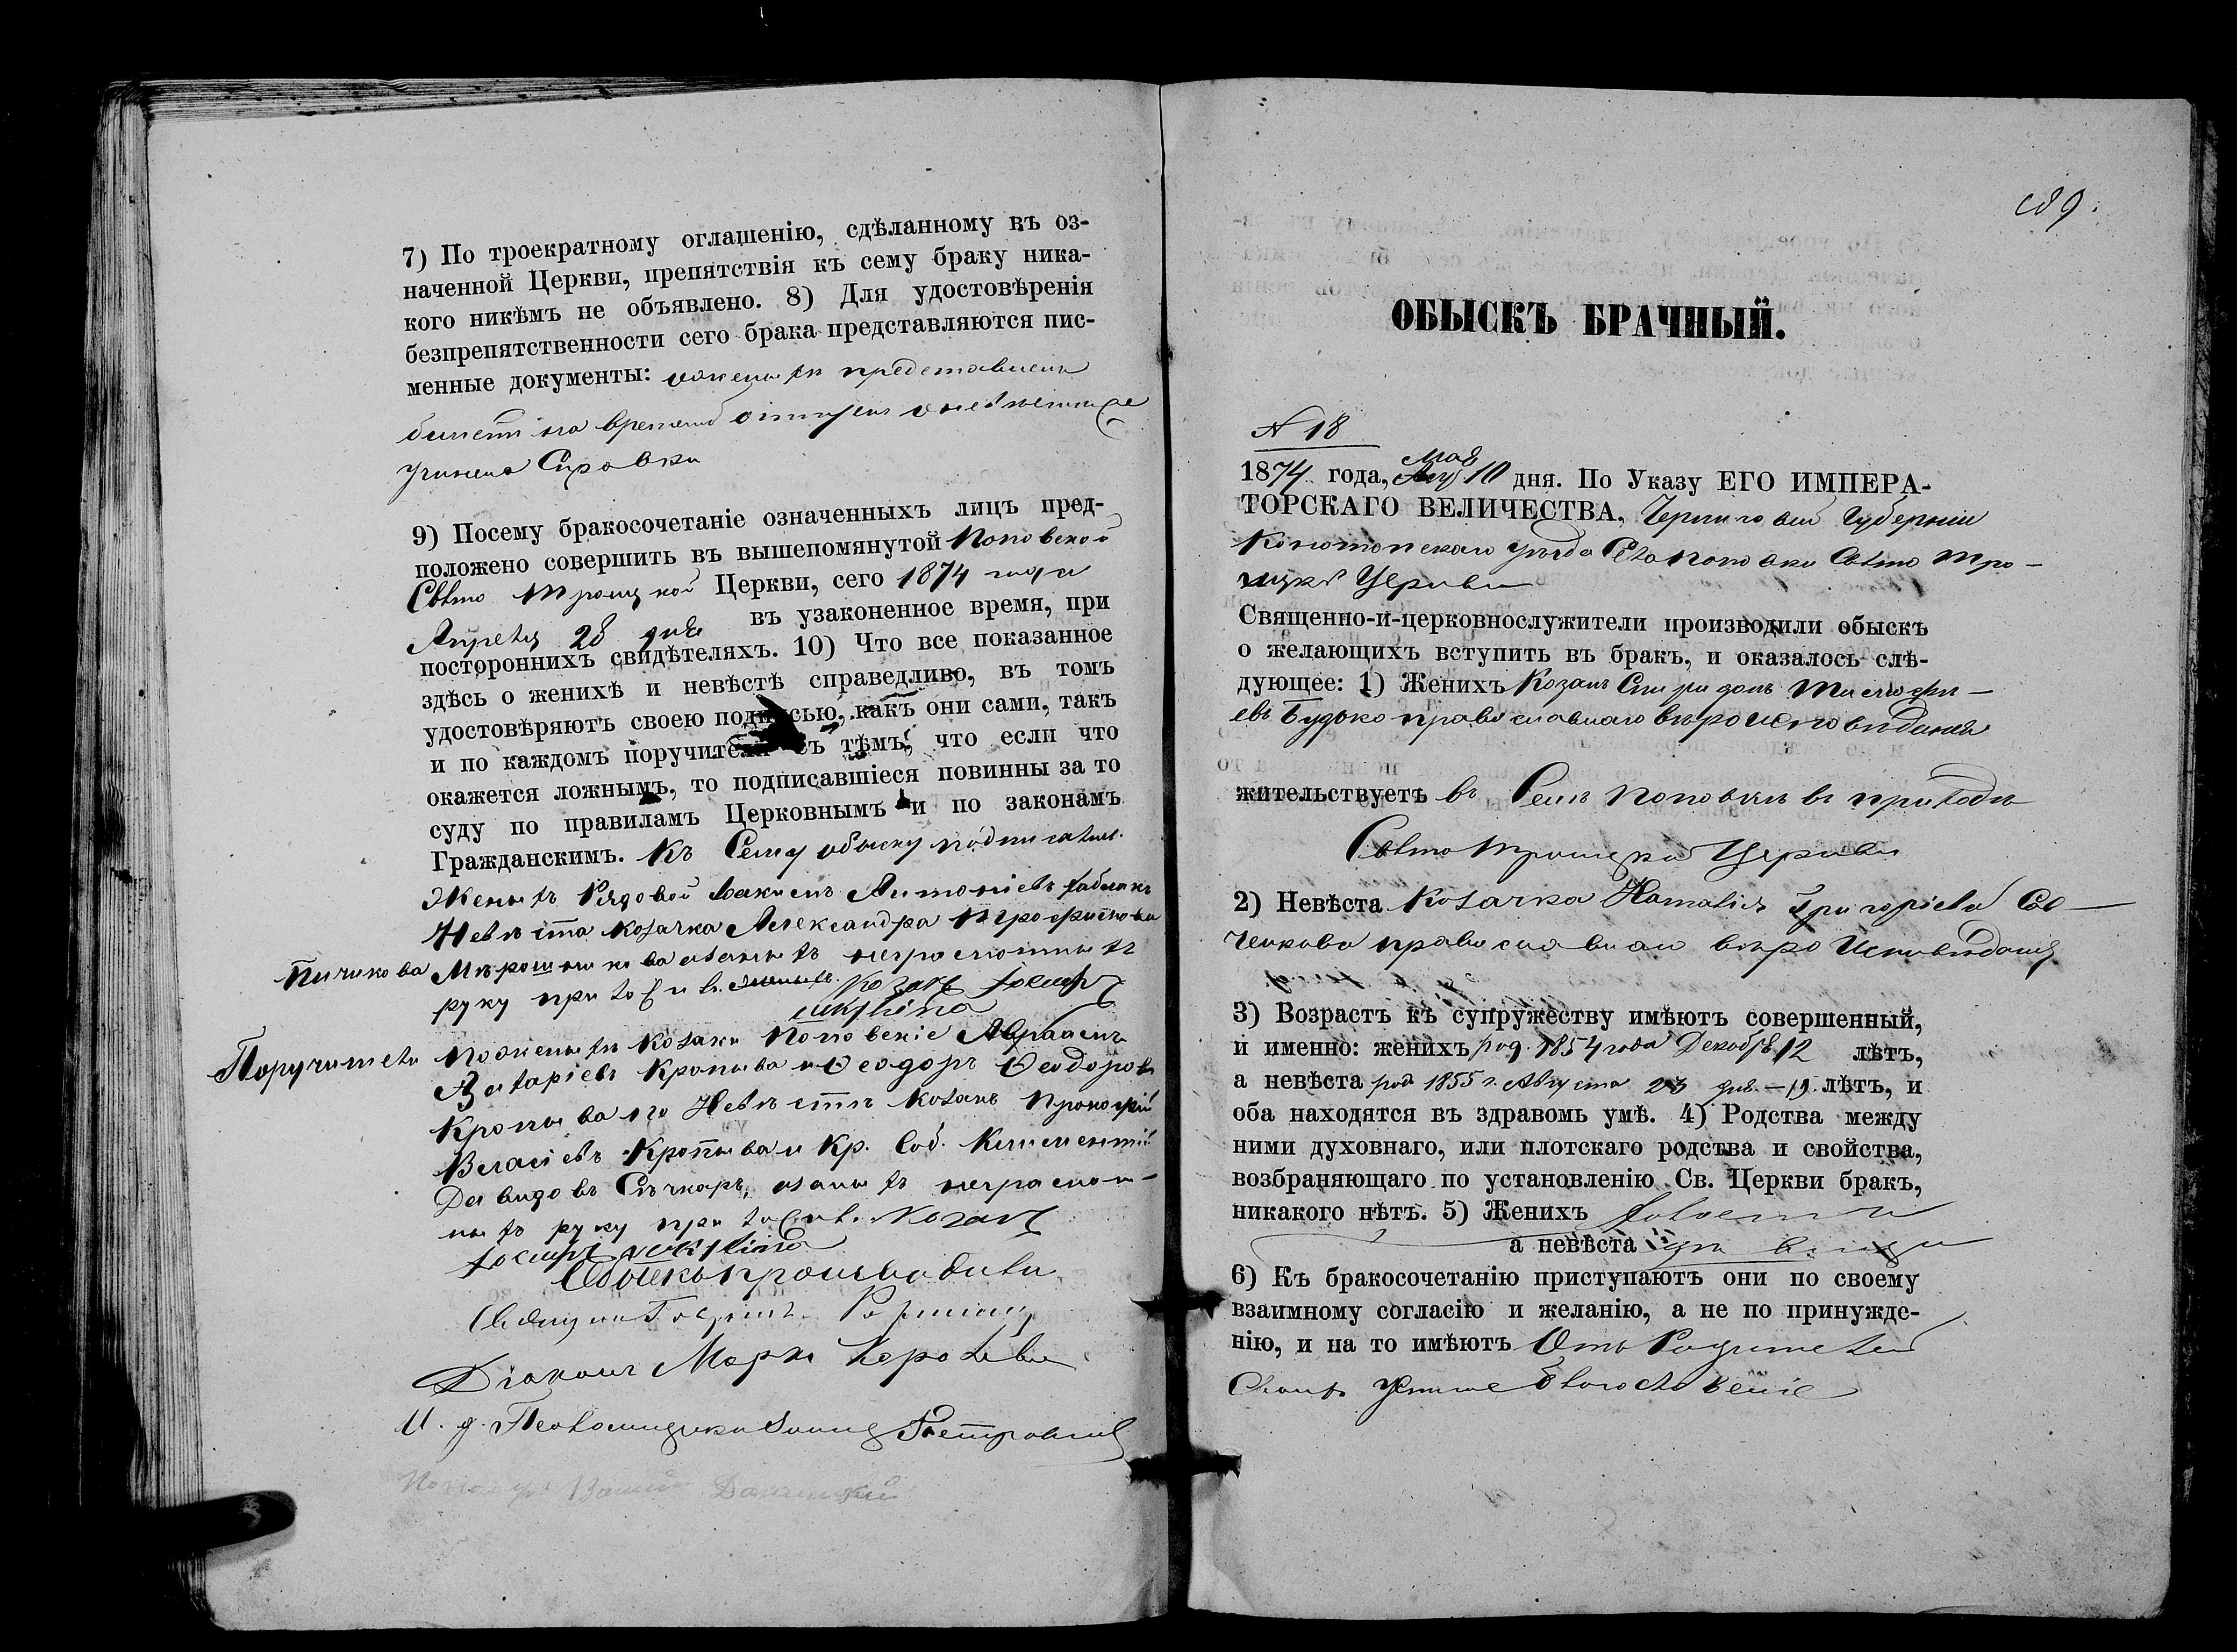 7) По троекратному оглашенію, сдѣланному въ оз-
наченной Церкви, препятствія къ сему браку ника-
кого никѣмъ не объявлено. 8) Для удостовѣренія
безпрепятственности сего брака представляются пис-
менные документы: женихъ представилъ
билетъ на временной отпускъ о невѣстѣ
учинена Справка
9) Посему бракосочетаніе означенныхъ лицъ пред-
положено совершить въ вышепомянутой Поповской
Свято Троицкой Церкви, сего 1874 года
Апреля 28 дня въ узаконенное время, при
постороннихъ свидѣтеляхъ. 10) Что все показанное
здѣсь о женихѣ и невѣстѣ справедливо, въ томъ
удостовѣряютъ своею подписью, какъ они сами, такъ
и по каждомъ поручители съ тѣмъ, что если что
окажется ложнымъ, то подписавшіеся повинны за то
суду по правиламъ Церковнымъ и по законамъ
Гражданскимъ. Къ Сему обыску подписались
Женихъ Рядовой Антоніевъ
Невѣста козачка Александра
а за нихъ неграмотныхъ
руку приложилъ Козакъ
Поручители по женихѣ козаки Поповскіе Авраамъ
Захаріевъ Кропыва и Ѳеодоръ Ѳеодоровъ
Кропыва по Невѣстѣ козакъ Прокофій
Власіевъ Кропыва и Кр. Соб. Климентій
Давидовъ Сѣчкаръ, а за нихъ неграмот-
ныхъ руку приложилъ Козакъ
Обыскъ производили
Священникъ
Діаконъ Марко
И. д. Псаломщика Петровскій
Пономарь
89.
ОБЫСКЪ БРАЧНЫЙ.
N 18
Мая
1874 года, 10 дня. По Указу ЕГО ИМПЕРА-
ТОРСКАГО ВЕЛИЧЕСТВА, Черниговской Губерніи
Конотопскаго уѣзда Села Поповки Свято Тро-
ицкой Церкви
Священно-и-церковнослужители производили обыскъ
о желающихъ вступить въ бракъ, и оказалось слѣ-
дующее: 1) Женихъ Козакъ Спиридонъ Тимофи-
евъ Будько православнаго вѣроисповѣданія
жительствуетъ въ Селѣ Поповкѣ въ приходѣ
Свято Троицкой Церкви
2) Невѣста Козачка Наталія Григоріева Сав-
ченкова православнаго вѣроисповѣданія
3) Возрастъ къ супружеству имѣютъ совершенный,
и именно: женихъ род. 1854 года Декабр. 12 лѣтъ,
а невѣста род. 1855 г. Августа 23 дня — 19 лѣтъ, и
оба находятся въ здравомъ умѣ. 4) Родства между
ними духовнаго, или плотскаго родства и свойства,
возбраняющаго по установленію Св. Церкви бракъ,
никакого нѣтъ. 5) Женихъ холостъ
а невѣста дѣвица
6) Къ бракосочетанію приступаютъ они по своему
взаимному согласію и желанію, а не по принужде-
нію, и на то имѣютъ Отъ Родителей
Своихъ Устное Благословеніе